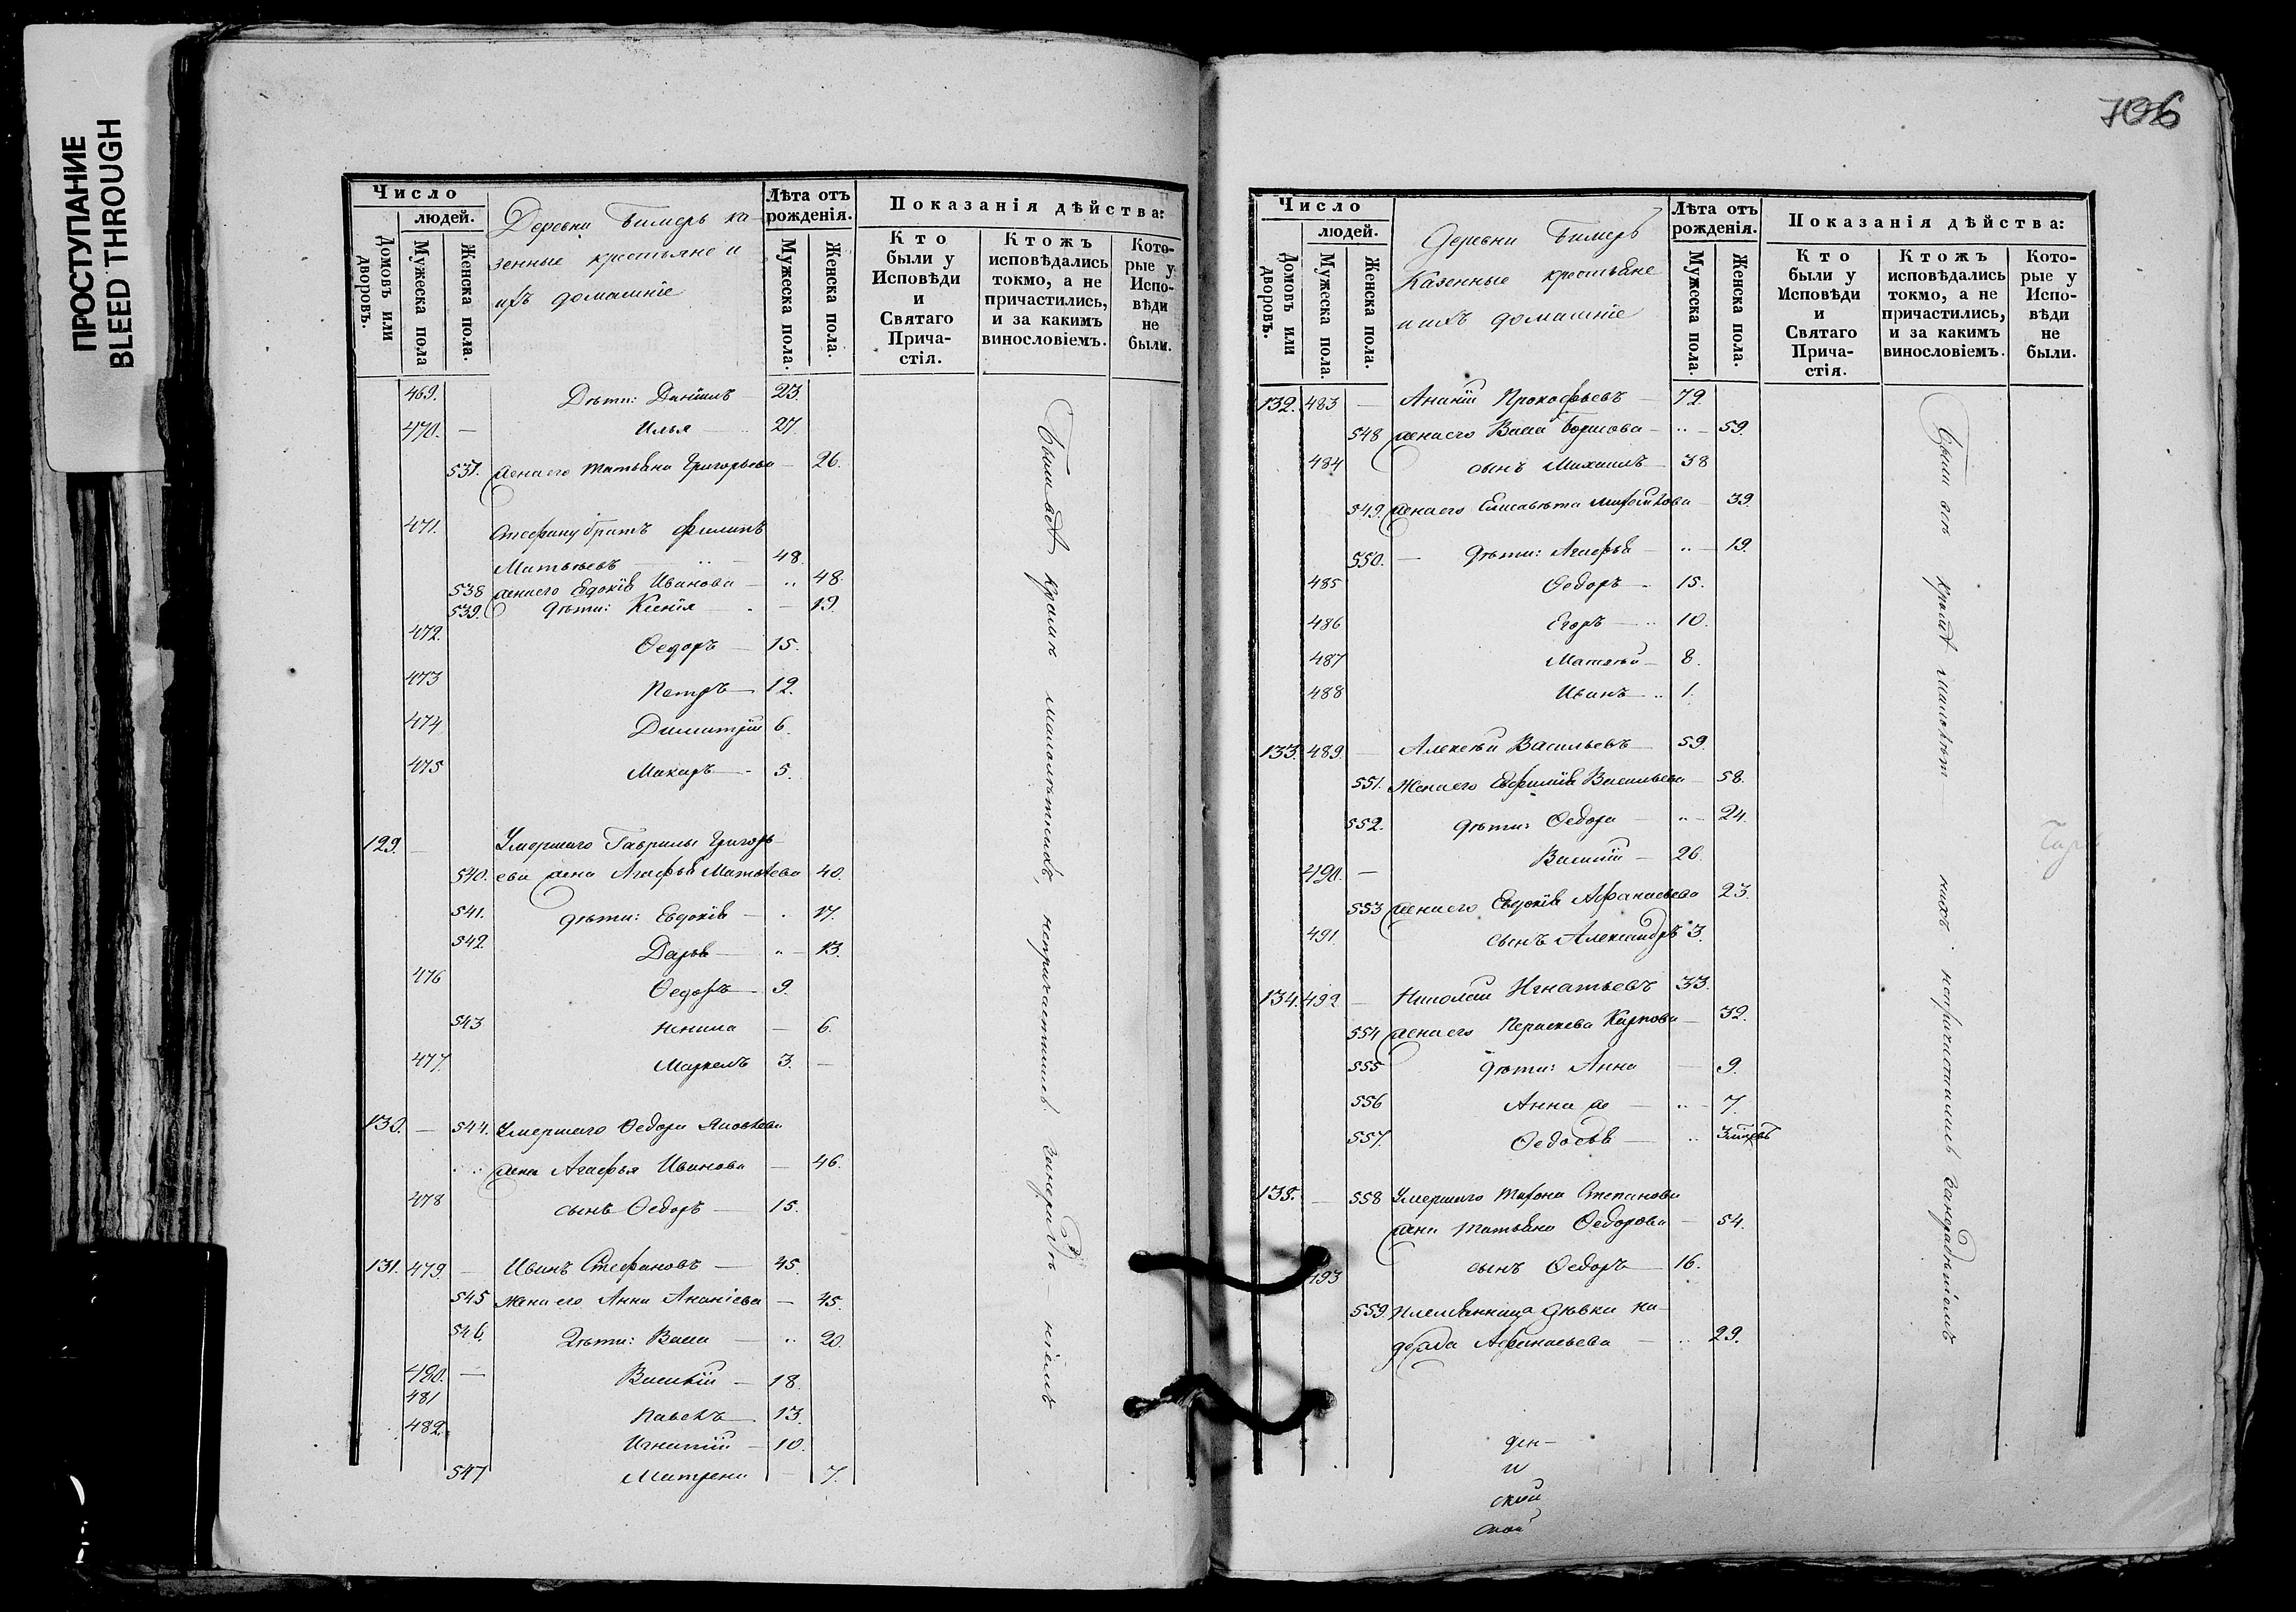 ПРОСТУПАНИЕ
BLEED THROUGH
Число
людей.
Домовъ или дворовъ.
Мужеска пола
Женска пола.
Деревни Бимерь ка-
зенные крестьяне и
ихъ домашніе
Лѣта отъ рожденія.
Мужеска пола.
Женска пола.
Показанія дѣйства:
Кто были у Исповѣди и Святаго Прича-стія.
Ктожъ исповѣдались токмо, а не причастились, и за какимъ винословіемъ.
Кото-рые у Испо-вѣди не были.
469. Дѣти: Даніилъ — 23.
470. — Илья — 27.
537. жена его Татьяна Григорьева — 26.
471. Стефану братъ Филипъ
Матвѣевъ 48.
538 жена его Евдокія Иванова — 48.
539. Дѣти: Ксенія — 19.
472. Ѳедоръ — 15.
473 Петръ — 12.
474 Димитрій 6.
475 Макаръ — 5.
129. — Умершаго Гаврилы Григорь-
540. ева жена Агафья Матвѣева 40.
541. Дѣти: Евдокія — 17.
542 Дарья — 13.
476 Ѳедоръ — 9.
543 Ненила — 6.
477. Маркелъ 3. —
130. — 544. Умершаго Ѳедора Яковлева
жена Агафья Иванова — 46.
478 сынъ Ѳедоръ — 15.
131. 479. — Иванъ Стефановъ — 45.
545 Жена его Анна Ананіева — 45.
546. Дѣти: Васса — 20.
480. — Василій — 18.
481 Павелъ — 13.
482. Игнатій — 10.
547 Матрена — 7.
Были всѣ кромѣ малолѣтнихъ, непричастились
106
Число
людей.
Домовъ или дворовъ.
Мужеска пола.
Женска пола.
Деревни Бимерь
Казенные крестьяне
и ихъ домашніе
Лѣта отъ рожденія.
Мужеска пола.
Женска пола.
Показанія дѣйства:
Кто были у Исповѣди и Святаго Прича-стія.
Ктожъ исповѣдались токмо, а не причастились, и за какимъ винословіемъ.
Кото-рые у Испо-вѣди не были.
132. 483 — Ананій Прокофьевъ — 72.
548 жена его Васса Борисова — 59.
484 сынъ Михаилъ — 38
549. жена его Елисавета — 39.
550. — Дѣти: Агафья — 19.
485 Ѳедоръ — 15.
486 Егоръ — 10.
487 Матвѣй — 8.
488 Иванъ 1.
133. 489. — Алексѣй Васильевъ — 59.
551. Жена его Евфимія Васильева — 58.
552. Дѣти: Ѳедора — 24.
490. — Василій — 26.
553 жена его Евдокія Афанасьева 23.
491. сынъ Александръ 3.
134. 492. — Николай Игнатьевъ 33.
554 жена его Параскева Карпова — 32.
555 Дѣти: Анна — 9.
556 Анна же — 7.
557. Ѳедосья —
135. — 558 Умершаго Степанова
жена Татьяна Ѳедорова — 54.
493 сынъ Ѳедоръ — 16.
559. племянница дѣвка На-
Афанасьева — 29.
Были всѣ кромѣ малолѣт
нихъ непричастились